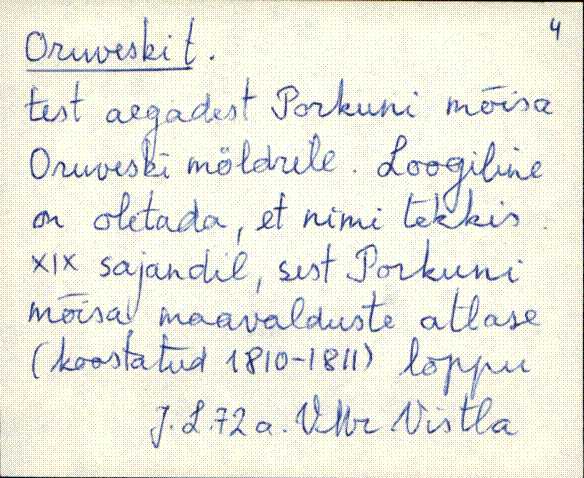 4
Oruveski t.
test aegadest Porkuni mõisa
Oruveski möldrele. Loogiline
on oletada, et nimi tekkis
XIX sajandil, sest Porkuni
mõisa maavalduste atlase
(koostatud 1810-1811) lõppu
J. L. 72 a. VMr Vistla